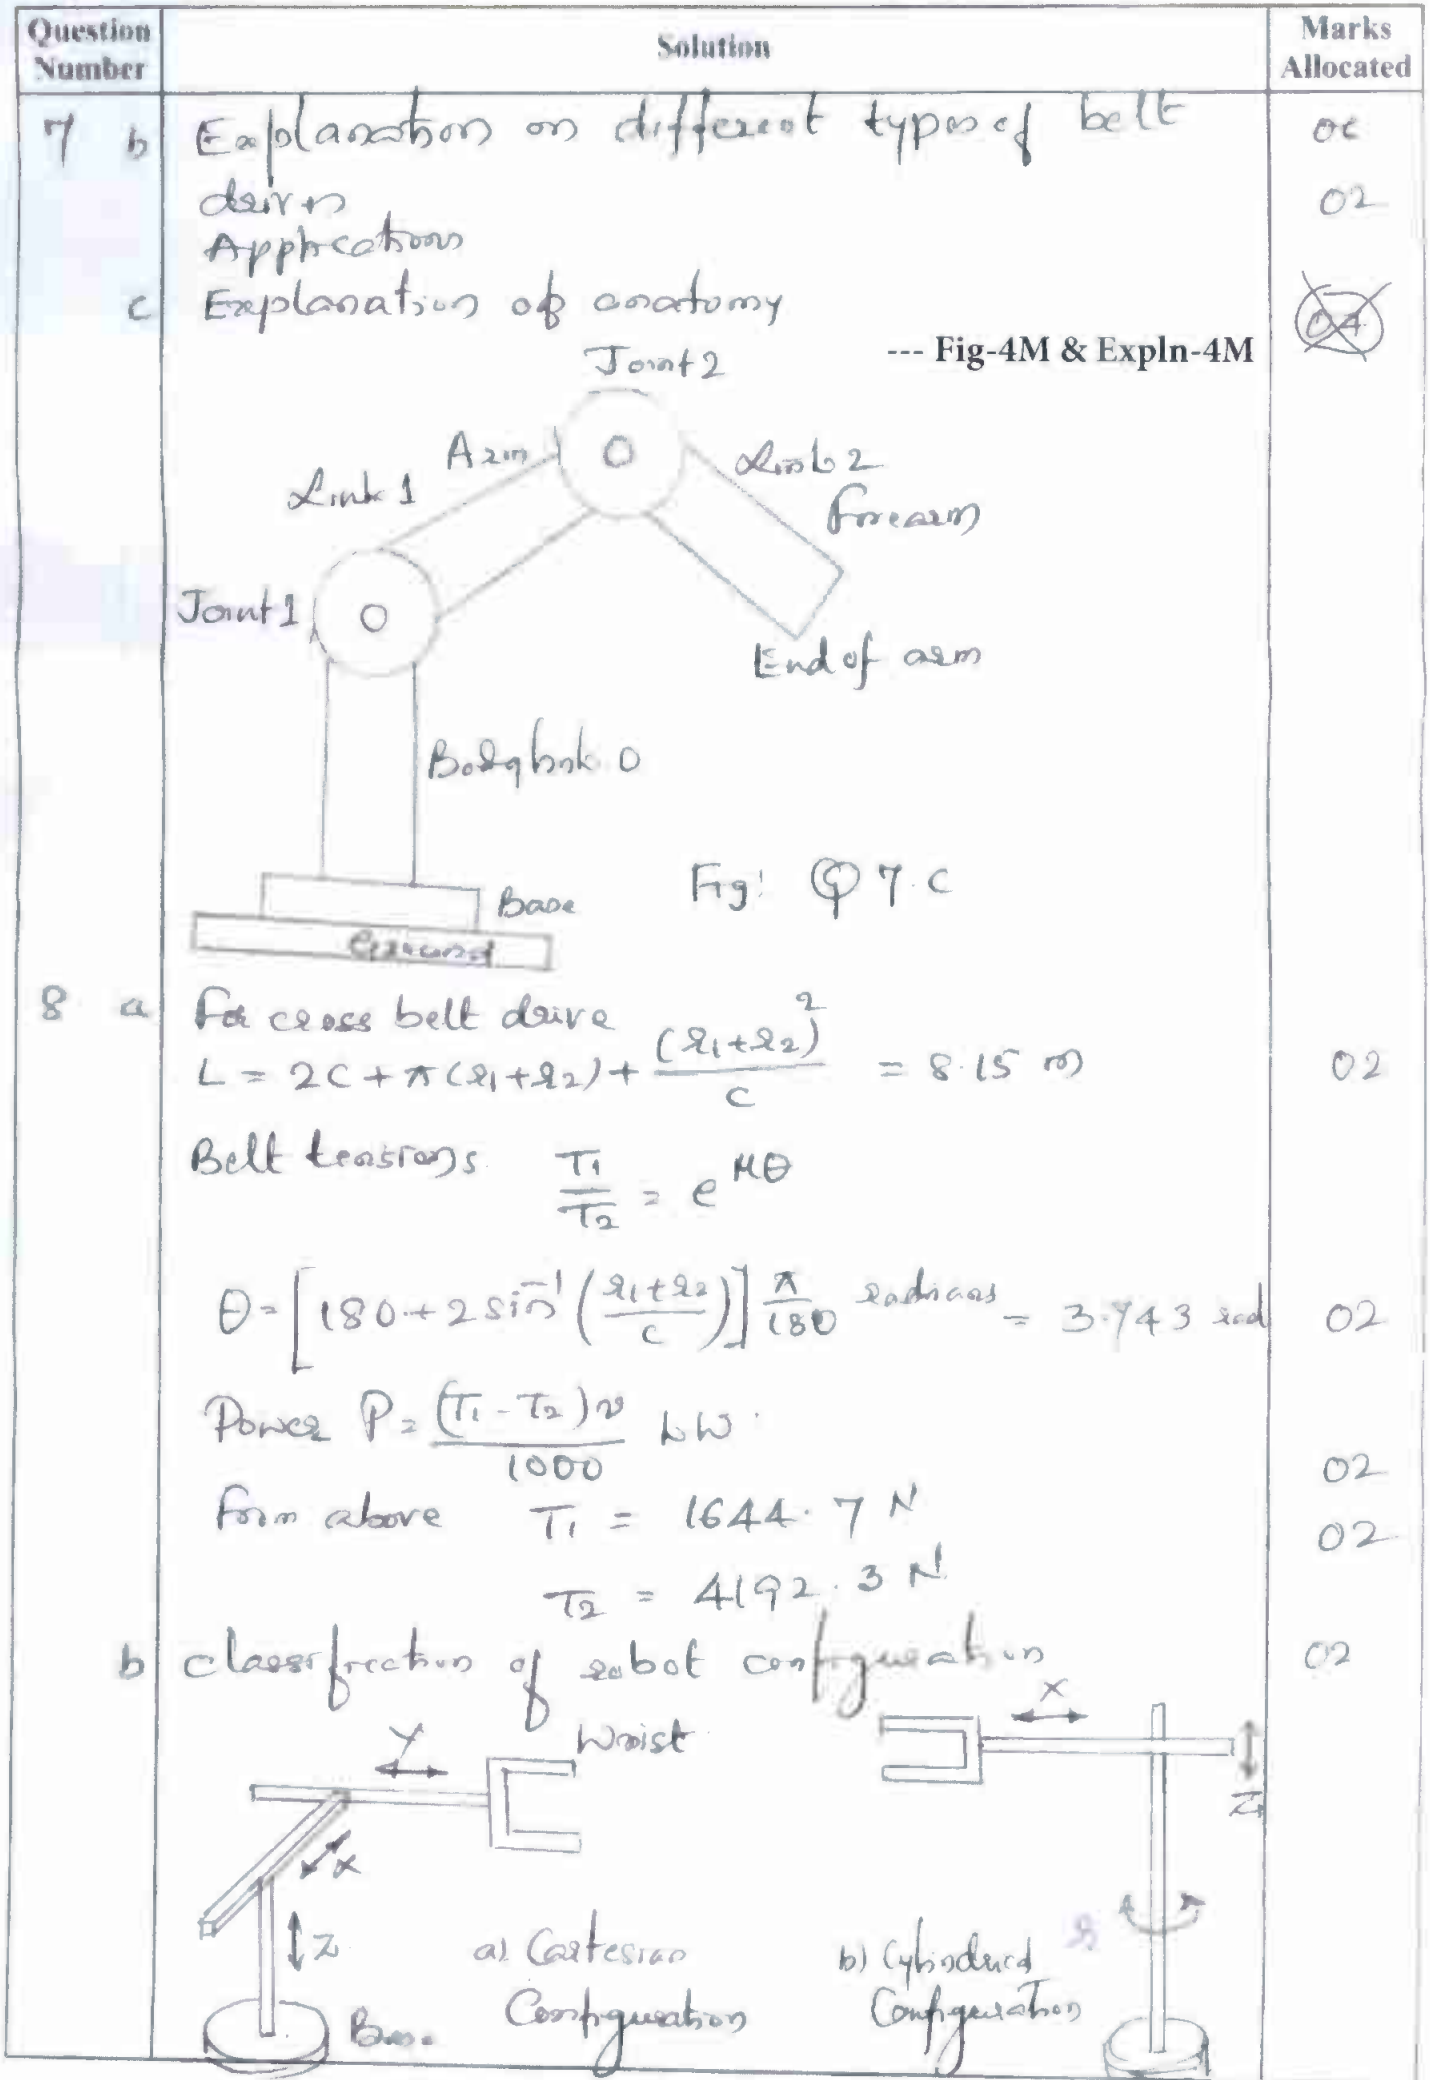 Question Number
Solution
Marks Allocated
7 b Explanation on different types of belt
drives 02
Applications
c Explanation of anatomy 04
--- Fig-4M & Expln-4M
Joint 2
Arm
Link 1
Link 2
Forearm
Joint 1
End of arm
Body link 0
Base
Ground
Fig: Q 7.c
8 a For cross belt drive
L = 2C + π(r1+r2) + (r1+r2)²/C = 8.15 m 02
Belt tensions T1/T2 = e^μθ
θ = [180 + 2 sin⁻¹((r1+r2)/C)] π/180 radians = 3.743 rad 02
Power P = (T1 - T2)v/1000 kW. 02
From above T1 = 1644.7 N 02
T2 = 4192.3 N
b Classification of robot configuration 02
Y
Wrist
X
Z
X
Z
a) Cartesian
Configuration
b) Cylindrical
Configuration
Base